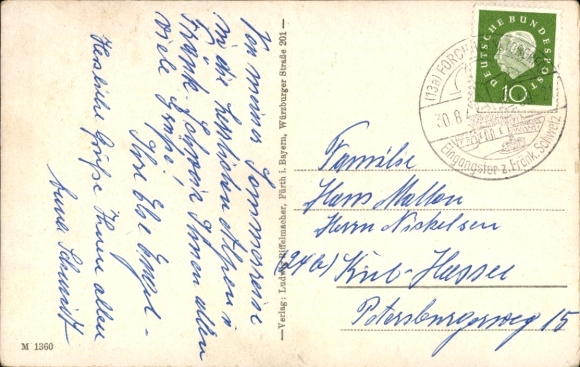 Von meiner Sommerreise
in die herrlichen Alpen u
Fränk. Schweiz Ihnen allen
viele Grüße
Ihre Else
Herzliche Grüße Ihnen allen
Anna Schmidt
M 1360
—Verlag: Ludwig Riffelmacher, Fürth i. Bayern, Würzburger Straße 201—
DEUTSCHE BUNDESPOST
10
(13a) FORCH
30.8.
Eingangstor z. Fränk. Schweiz
Familie
Hans
Herrn Nickelsen
(24b) Kiel-Hassee
Petersburgerweg 15